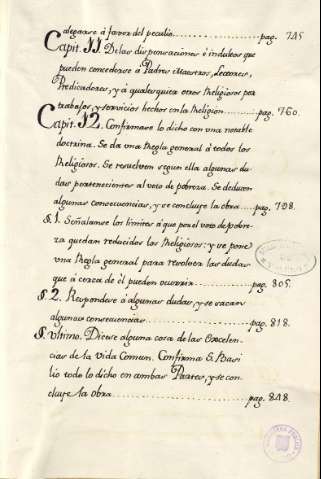 alegarse á favor del peculio. . . . . . . pag. 745
Capit. 11. De las dispensaciones é indultos que
pueden concederse á Padres Maestros, Lectores,
Predicadores, y á qualesquier otros Religiosos por
trabajos, y servicios hechos en la Religion. . . . . . pag. 760.
Capit. 12. Confirmase lo dicho con una notable
doctrina. Se da una Regla general á todos los
Religiosos. Se resuelven segun ella algunas du-
das pertenecientes al voto de pobreza. Se deducen
algunas consecuencias, y se concluye la obra. . . pag. 798.
§. 1. Señalanse los limites á que por el voto de pobre-
za quedan reducidos los Religiosos: y se pone
una Regla general para resolver las dudas
que á cerca de él pueden ocurrir. . . . . . . pag. 805.
§. 2. Respondese á algunas dudas, y se sacan
algunas consecuencias. . . . . . . pag. 818.
§. Ultimo. Dicese alguna cosa de las Excelen-
cias de la Vida Comun. Confirma S. Basi-
lio todo lo dicho en ambas Partes, y se con-
cluye la obra. . . . . . . pag. 848.